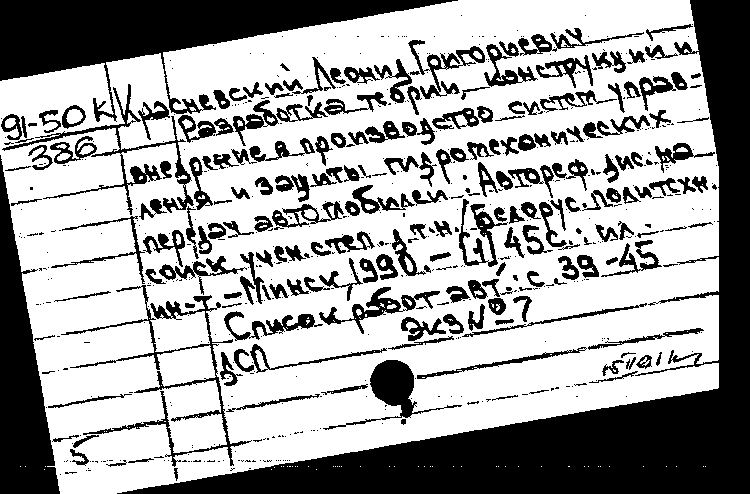 91-50 К
386
Красневский Леонид Григорьевич
Разработка теории, конструкций и
внедрение в производство систем управ-
ления и защиты гидромеханических
передач автомобилей : Автореф. дис. на
соиск. учен. степ. д.т.н. / Белорус. политехн.
ин-т. - Минск 1990. - [1] 45 с. : ил. -
Список работ авт.: с. 39-45
Экз № 7
ДСП
5